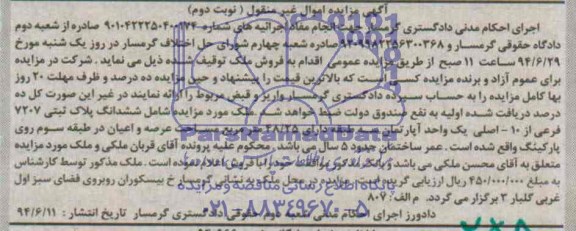 آگهی مزایده اموال غیر منقول ( نوبت دوم)
اجرای احکام مدنی دادگستری گرمسار جهت انجام مفاد اجرائیه های شماره صادره از شعبه دوم
دادگاه حقوقی گرمسار و صادره شعبه چهارم شورای حل اختلاف گرمسار در روز یک شنبه مورخ
۹۴/۶/۲۹ ساعت ۱۱ صبح از طریق مزایده عمومی اقدام به فروش ملک توقیف شده ذیل می نماید . شرکت در مزایده
برای عموم آزاد و برنده مزایده کسی است که بالاترین قیمت را پیشنهاد و حین مزایده ده درصد و ظرف مهلت ۲۰ روز
بها کامل مزایده را به حساب سپرده دادگستری گرمسار واریز و قبض مربوط را ارائه نمایند در غیر این صورت کل ده
درصد دریافت شده اولیه به نفع صندوق دولت ضبط خواهد شد. ملک مورد مزایده شامل ششدانگ پلاک ثبتی ۷۲۰۷
فرعی از ۱۰ - اصلی یک واحد آپارتمان دارای عرصه و اعیان در طبقه سوم روی
پارکینگ واقع شده است . عمر ساختمان حدود ۵ سال می باشد . محکوم علیه پرونده آقای قربان ملکی و ملک مورد مزایده
متعلق به آقای محسن ملکی می باشد است . ملک مذکور توسط کارشناس
به مبلغ ۴۵۰/۰۰۰/۰۰۰ ریال ارزیابی گردیده است مزایده در محل ملک به نشانی گرمسار خ بیسکوران روبروی فضای سبز اول
غربی گلبار ۳ برگزار می گردد. م الف: ۸۰۷
دادورز اجرای احکام مدنی شعبه دوم حقوقی دادگستری گرمسار تاریخ انتشار : ۹۴/۶/۱۱
پایگاه اطلاع رسانی مناقصه و مزایده
۰۲۱-۸۸۳۴۹۶۷۰-۵